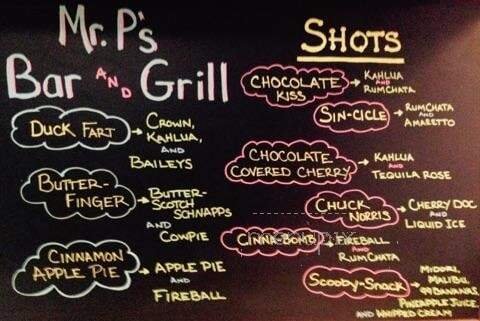 Mr. P's
Bar AND Grill
DUCK FART → CROWN,
KAHLUA,
AND
BAILEYS
BUTTER-
FINGER → BUTTER-
SCOTCH
SCHNAPPS
AND
COWPIE
CINNAMON
APPLE PIE → APPLE PIE
AND
FIREBALL
SHOTS
CHOCOLATE
KISS → KAHLUA
AND
RUMCHATA
SIN-CICLE → RUMCHATA
AND
AMARETTO
CHOCOLATE
COVERED CHERRY → KAHLUA
AND
TEQUILA ROSE
CHUCK
NORRIS → CHERRY DOC
AND
LIQUID ICE
CINNABOMB → FIREBALL
AND
RUMCHATA
SCOOBY-SNACK → MIDORI,
MALIBU,
99 BANANAS,
PINEAPPLE JUICE,
AND WHIPPED CREAM